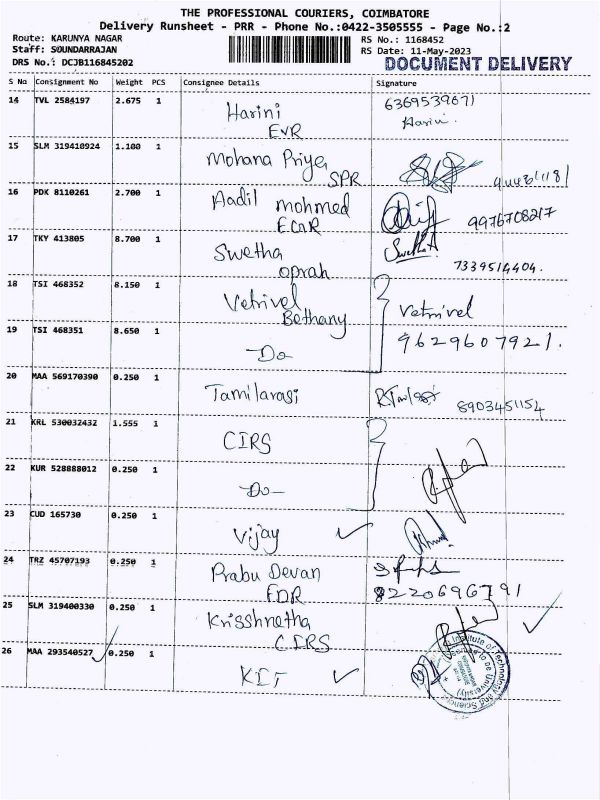 THE PROFESSIONAL COURIERS, COIMBATORE
Delivery Runsheet - PRR - Phone No.:0422-3505555 - Page No.:2
Route: KARUNYA NAGAR
Staff: SOUNDARRAJAN
DRS No.: DCJB116845202
RS No.: 1168452
RS Date: 11-May-2023
DOCUMENT DELIVERY
S No Consignment No Weight PCS Consignee Details Signature
14 TVL 2584197 2.675 1 Harini EVR 6369539671 Harini
15 SLM 319410924 1.100 1 Mohana Priya SPR
16 PDK 8110261 2.700 1 Aadil mohmed 9976708217
17 TKY 413805 8.700 1 Swetha oprah Swetha 7339514404.
18 TSI 468352 8.150 1 Vetrivel Bethany Vetrivel
19 TSI 468351 8.650 1 -Do- 9629607921.
20 MAA 569170390 0.250 1 Tamilarasi 8903451154
21 KRL 530032432 1.555 1 CIRS
22 KUR 528888012 0.250 1 -Do-
23 CUD 165730 0.250 1 Vijay
24 TRZ 45707193 0.250 1 Prabu Devan 8220696791
25 SLM 319400330 0.250 1 Krisshnetha CIRS
26 MAA 293540527 0.250 1 KIT
Institute of Technology and Sciences